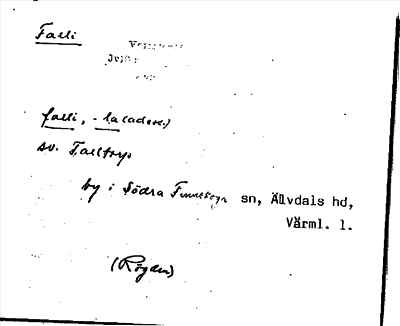 Falli
falli, -la (adess.)
sv. Falltorp
by i Södra Finnskoga sn, Älvdals hd,
Värml. l.
(Rögden)